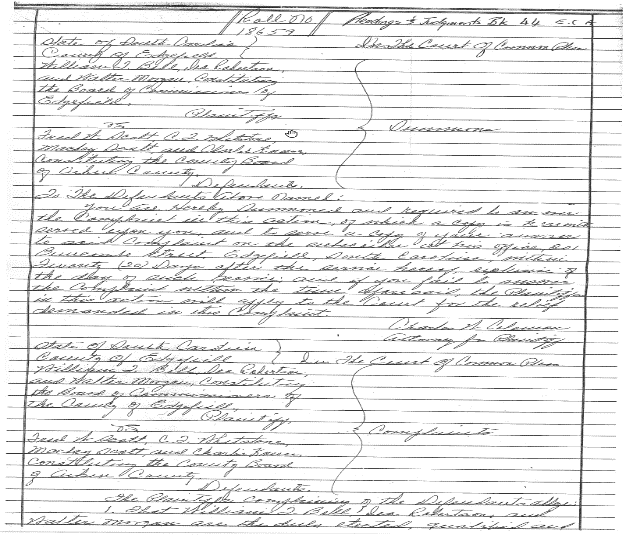 Roll No Pleadings & Judgments Bk 44 E.C.
18659
State of South Carolina
County of Edgefield In The Court of Common Pleas
William T. Bell, Ira Robertson,
and Walter Morgan, Constituting
the Board of Commissioners of
Edgefield,
Plaintiffs
vs
Fred W. Scott, C. T.
Marley Scott and Charlie
Constituting the County Board
of Aiken County,
Defendants.
Summons
To The Defendants Above Named:
You Are Hereby Summoned and required to answer
the Complaint in this action, of which a copy is herewith
served upon you, and to serve a copy of your answer
to said Complaint on the subscriber at his office,
Street Edgefield, South Carolina, within
Twenty (20) Days after the service hereof, exclusive of
the day of such service; and if you fail to answer
the Complaint within the time aforesaid, the Plaintiffs
in this action will apply to the Court for the relief
demanded in the Complaint.
Charles W. Coleman
Attorney for Plaintiffs
State of South Carolina
County of Edgefield In The Court of Common Pleas
William T. Bell, Ira Robertson,
and Walter Morgan, Constituting
the Board of Commissioners of
the County of Edgefield,
Plaintiffs,
vs
Fred W. Scott, C. T.
Marley Scott, and Charlie
Constituting the County Board
of Aiken County,
Defendants
Complaint
The Plaintiffs complaining of the Defendants allege:
1. That William T. Bell, Ira Robertson, and
Walter Morgan are the duly elected, qualified and